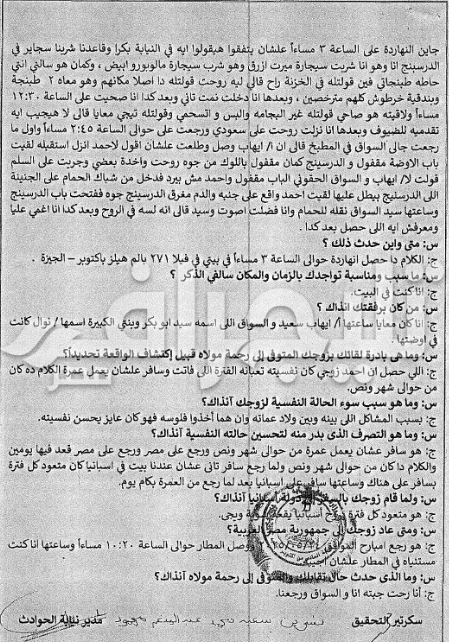 جاين النهاردة على الساعة ٣ مساءاً علشان يتفقوا هيقولوا ايه في النيابة بكرا وقاعدنا شربنا سجاير في
الدرسينج انا وهو انا شربت سيجارة ميرت ازرق وهو شرب سيجارة مالوبورو ابيض ، وكمان هو سالني انتي
حاطه طبنجاتي فين قولتله في الخزنة راح قالي ليه روحت قولتله دا اصلا مكانهم وهو معاه ٢ طبنجة
وبندقية خرطوش كلهم مترخصين ، وبعدها انا دخلت نمت تاني وبعد كدا انا صحيت على الساعة ١٢:٣٠
مساءاً ولاقيته هو صاحي قولتله غير البجامه والبس و اتسحمي وقولتله تيجي معايا قالي لا هيجيب ايه
تقدميه للضيوف وبعدها انا نزلت روحت على سعودي ورجعت على حوالى الساعة ٢:٤٥ مساءاً واول ما
رجعت جالى السواق في المطبخ قالى ان ا/ ايهاب وصل وطلعت علشان اقول لاحمد انزل استقبله لقيت
باب الاوضة مقفول و الدرسينج كمان مقفول باللوك من جوه روحت واخدة بعضي وجريت على السلم
قولت لا/ ايهاب و السواق الحقوني الباب مقفول واحمد مش بيرد فدخل من شباك الحمام على الجنينة
اللى الدرسينج بيطل عليها لقيت احمد واقع على جنبه والدم مغرق الدرسينج جوه ففتحت باب الدرسينج
وساعتها سيد السواق نقله للحمام وانا فضلت اصوت وسيد قالى انه لسه في الروح وبعد كدا انا اغمى عليا
ومعرفش ايه اللى حصل بعد كدا .
س: متى واين حدث ذلك ؟
ج: الكلام دا حصل انهاردة حوالى الساعة ٣ مساءاً في بيتي في فيلا ٢٧١ بالم هيلز باكتوبر – الجيزة .
س: ما سبب ومناسبة تواجدك بالزمان والمكان سالفي الذكر ؟
ج: انا كنت في البيت.
س: من كان برفقتك انذاك ؟
ج: انا كان معايا ساعتها ا/ ايهاب سعيد و السواق اللى اسمه سيد ابو بكر وبنتي الكبيرة اسمها / نوال كانت
في اوضتها.
س: وما هي بادرة لقائك بزوجك المتوفى إلى رحمة مولاه قبيل إكتشاف الواقعة تحديداً؟
ج: اللى حصل ان احمد زوجي كان نفسيته تعبانه الفترة اللى فاتت وسافر علشان يعمل عمرة الكلام ده كان
من حوالى شهر ونص.
س: وما هو سبب سوء الحالة النفسية لزوجك آنذاك؟
ج: بسبب المشاكل اللى بينه وبين ولاد عمانه وان هما أخذوا فلوسه فهو كان عايز يحسن نفسيته.
س: وما هو التصرف الذى بدر منه لتحسين حالته النفسية آنذاك؟
ج: هو سافر علشان يعمل عمرة من حوالى شهر ونص ورجع على مصر ورجع على مصر قعد فيها يومين
والكلام دا كان من حوالى شهر ونص ولما رجع سافر تانى عشان عندنا بيت في اسبانيا كان متعود كل فترة
يسافر على هناك وساعتها سافر على أسبانيا بعد لما رجع من العمرة بكام يوم.
س: ولما قام زوجك بالسفر إلى دولة أسبانيا آنذاك؟
ج: هو متعود كل فترة يروح أسبانيا يقعد شوية ويجى.
س: ومتى عاد زوجك إلى جمهورية مصر العربية؟
ج: هو رجع امبارح الموافق وصل المطار حوالى الساعة ١٠:٢٠ مساءاً وساعتها أنا كنت
مستنياه في المطار علشان أجيبه
س: وما الذى حدث حال تقابلك والمتوفى إلى رحمة مولاه آنذاك؟
ج: أنا رحت جبته انا و السواق ورجعنا.
سكرتير التحقيق
مدير نيابة الحوادث